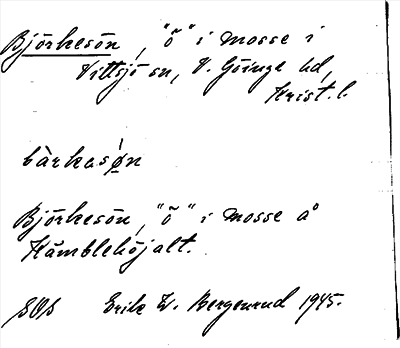 Björkesön, "ö" i mosse i
Vittsjö sn, V. Göinge hd,
Krist. l.
bàrkasø̀n
Björkesön, "ö" i mosse å
Hämblehöjalt.
SOS Erik W. Bergenrud 1945.